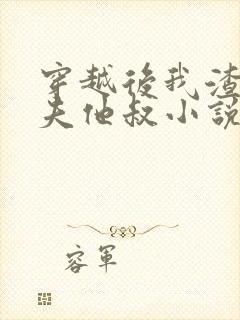 穿越後我渣
夫他叔小說
容軍